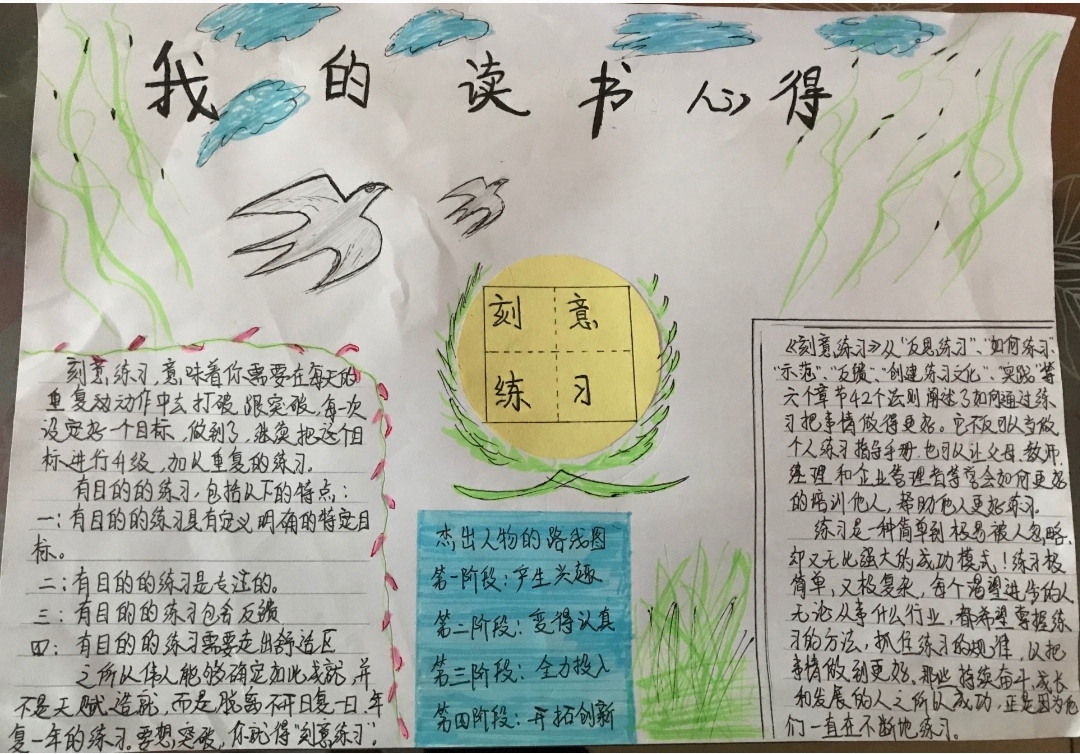 我的读书心得
刻意
练习
刻意练习,意味着你需要在每天的
重复动动作中去打破限突破,每一次
设定好一个目标,做到了,继续把这个目
标进行升级,加以重复的练习。
有目的的练习,包括以下的特点:
一:有目的的练习具有定义明确的特定目
标。
二:有目的的练习是专注的。
三:有目的的练习包含反馈
四:有目的的练习需要走出舒适区
之所以伟人能够确定如此成就,并
不是天赋造就,而是脱离不开日复一日,年
复一年的练习。要想突破,你就得“刻意练习”.
杰出人物的路线图
第一阶段:产生兴趣
第二阶段:变得认真
第三阶段:全力投入
第四阶段:开拓创新
《刻意练习》从“反思练习”、“如何练习”、
“示范”、“反馈”、“创建练习文化”、“实践”等
六个章节42个法则阐述了如何通过练
习把事情做得更好。它不仅可以当做
个人练习指导手册,也可以让父母、教师、
经理和企业管理者等学会如何更好
的培训他人,帮助他人更好练习。
练习是一种简单到极易被人忽略、
却又无比强大的成功模式!练习极
简单,又极复杂,每个渴望进步的人
无论从事什么行业,都希望掌握练
习的方法,抓住练习的规律,以把
事情做到更好,那些持续奋斗、成长
和发展的人之所以成功,正是因为他
们一直在不断地练习。